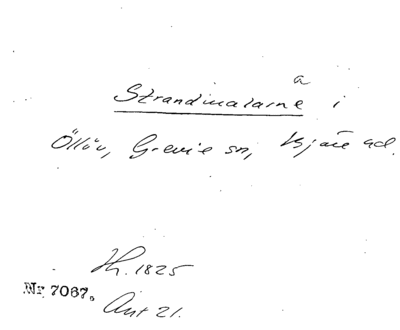 Strandmalarna i
Öllöv, Grevie sn, Bjäre hd.
Th. 1825
Nr 7067.
Ant 21.